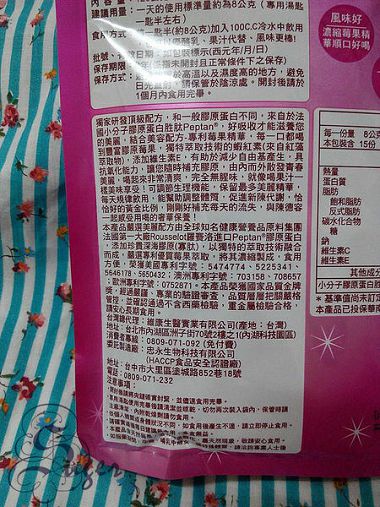 建議用量：一天的使用標準量約為8公克(專用湯匙
一匙半左右)
一匙半(約8公克)加入100C.C冷水中飲用
優酪乳、果汁代替、風味更棒!
如包裝標示(西元年/月/日)
保存期限：
保存方式：
高溫以及濕度高的地方，避免
日光直射，請保管於陰涼處。開封後請於
1個月內食用完畢。
風味好
濃縮莓果精
華順口好喝
獨家研發頂級配方，和一般膠原蛋白不同，來自於法
國小分子膠原蛋白胜肽Peptan®，好吸收才能滋養您
的美麗，結合美容配方-專利莓果精華，每一口都喝
到豐富膠原莓果，獨特萃取技術的蝦紅素(來自紅藻
萃取物)，添加維生素E，有助於減少自由基產生，具
抗氧化能力，讓您隨時補充膠原，由內而外散發青春
美麗，喝起來非常清爽，完全無腥味，就像喝果汁一
樣美味享受！可調節生理機能，保留最多美麗精華，
每天規律飲用，能幫助調整體質，促進新陳代謝，恰
恰好的黃金比例，剛剛好補充每天的流失，與陳德容
一起感受用喝的奢華保養！
本產品嚴選美麗配方由全球知名健康營養品原料集團
法國第一大廠Rousselot羅賽洛進口Peptan®膠原蛋白
，添加珍貴深海膠原(寡肽)，以獨特的萃取技術融合
而成，嚴選專利優質莓果萃取，將其濃縮製成，食用
方便，榮獲美國專利字號：5474774、5225341、
5646178、5650432；澳洲專利字號：703158、708657
；歐洲專利字號：0752871。本產品榮獲國家品質金牌
獎，經過嚴謹、專業的驗證審查，品質層層把關嚴格
管控，並確認通過不含西藥檢驗，重金屬檢驗合格，
請安心長期食用。
台灣總代理：維康生醫實業有限公司(產地：台灣)
地址：台北市內湖區洲子街70號2樓之1(內湖科技園區)
消費者專線：0809-071-092 (免付費)
委託製造廠：忠永生物科技有限公司
(HACCP食品安全管制認證)
地址：台中市大里區塗城路852巷18號
電話：0809-071-232
注意事項：
每一份量 8公克
本包裝含 15份
熱量
蛋白質
脂肪
飽和脂肪
反式脂肪
碳水化合物
糖
鈉
維生素C
維生素E
其他成分
小分子膠原蛋白
*基準值尚未訂定
本產品已投保華南